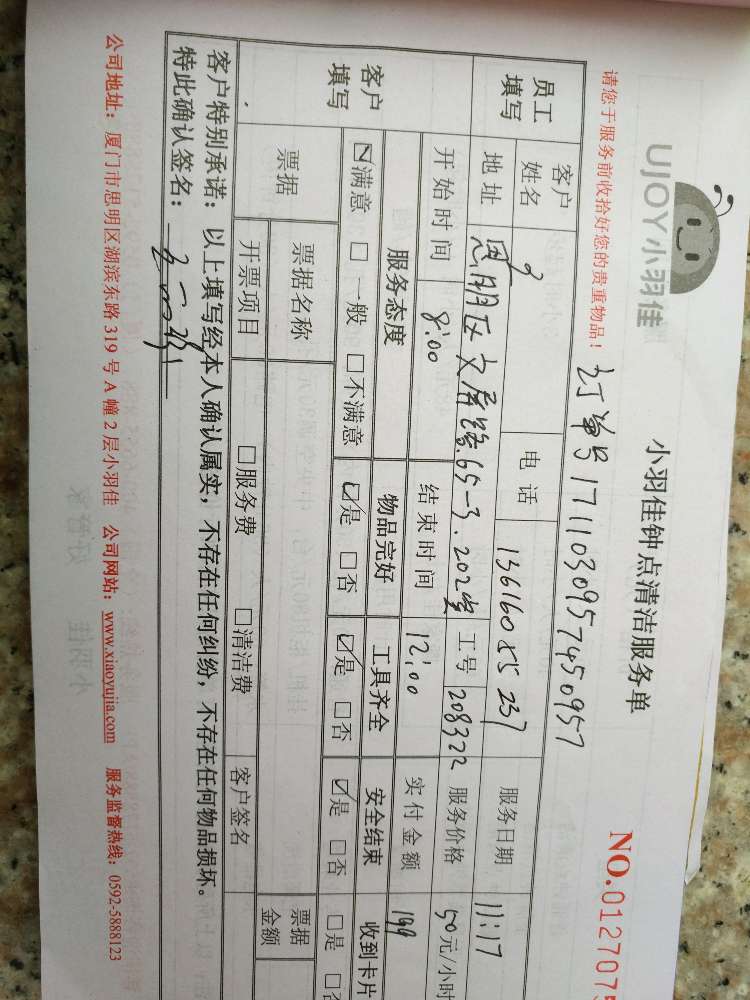 UJOY小羽佳
小羽佳钟点清洁服务单
NO.0127075
请您于服务前收拾好您的贵重物品！ 订单号17111030957450957
员工填写 客户姓名 电话 13616055237 服务日期 11:17
地址 思明区文屏路.65-3.202室 工号 208322 服务价格 50元/小时
开始时间 8:00 结束时间 12:00 实付金额 199
客户填写 服务态度 物品完好 工具齐全 安全结束 收到卡片
☑满意 □一般 □不满意 ☑是 □否 ☑是 □否 ☑是 □否 □是 □否
票据 票据名称 票据金额
开票项目 □服务费 □清洁费 客户签名
客户特别承诺：以上填写经本人确认属实，不存在任何纠纷，不存在任何物品损坏。
特此确认签名：
公司地址：厦门市思明区湖滨东路319号A幢2层小羽佳 公司网站：www.xiaoyujia.com 服务监督热线：0592-5888123